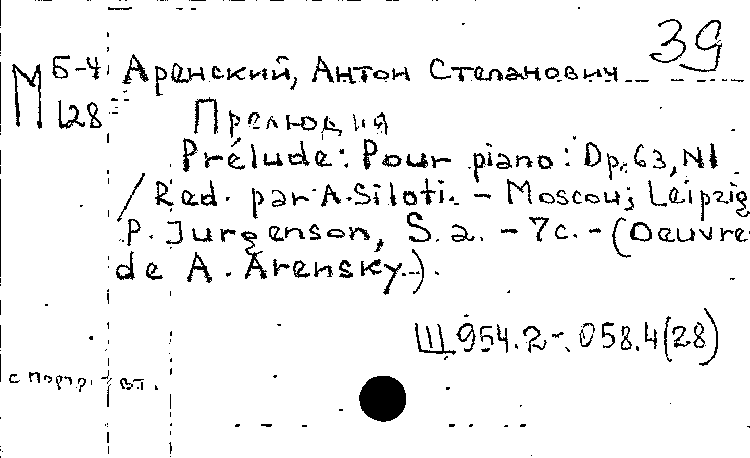 39
М Б-4 Аренский, Антон Степанович
128 Прелюдия
Prélude: Pour piano: Op. 63, N1
/ Red. par A. Siloti. - Moscou; Leipzig
P. Jurgenson, S. a. - 7c. - (Oeuvre
de A. Arensky.).
Щ 954.2-.058.4(28)
с портр.